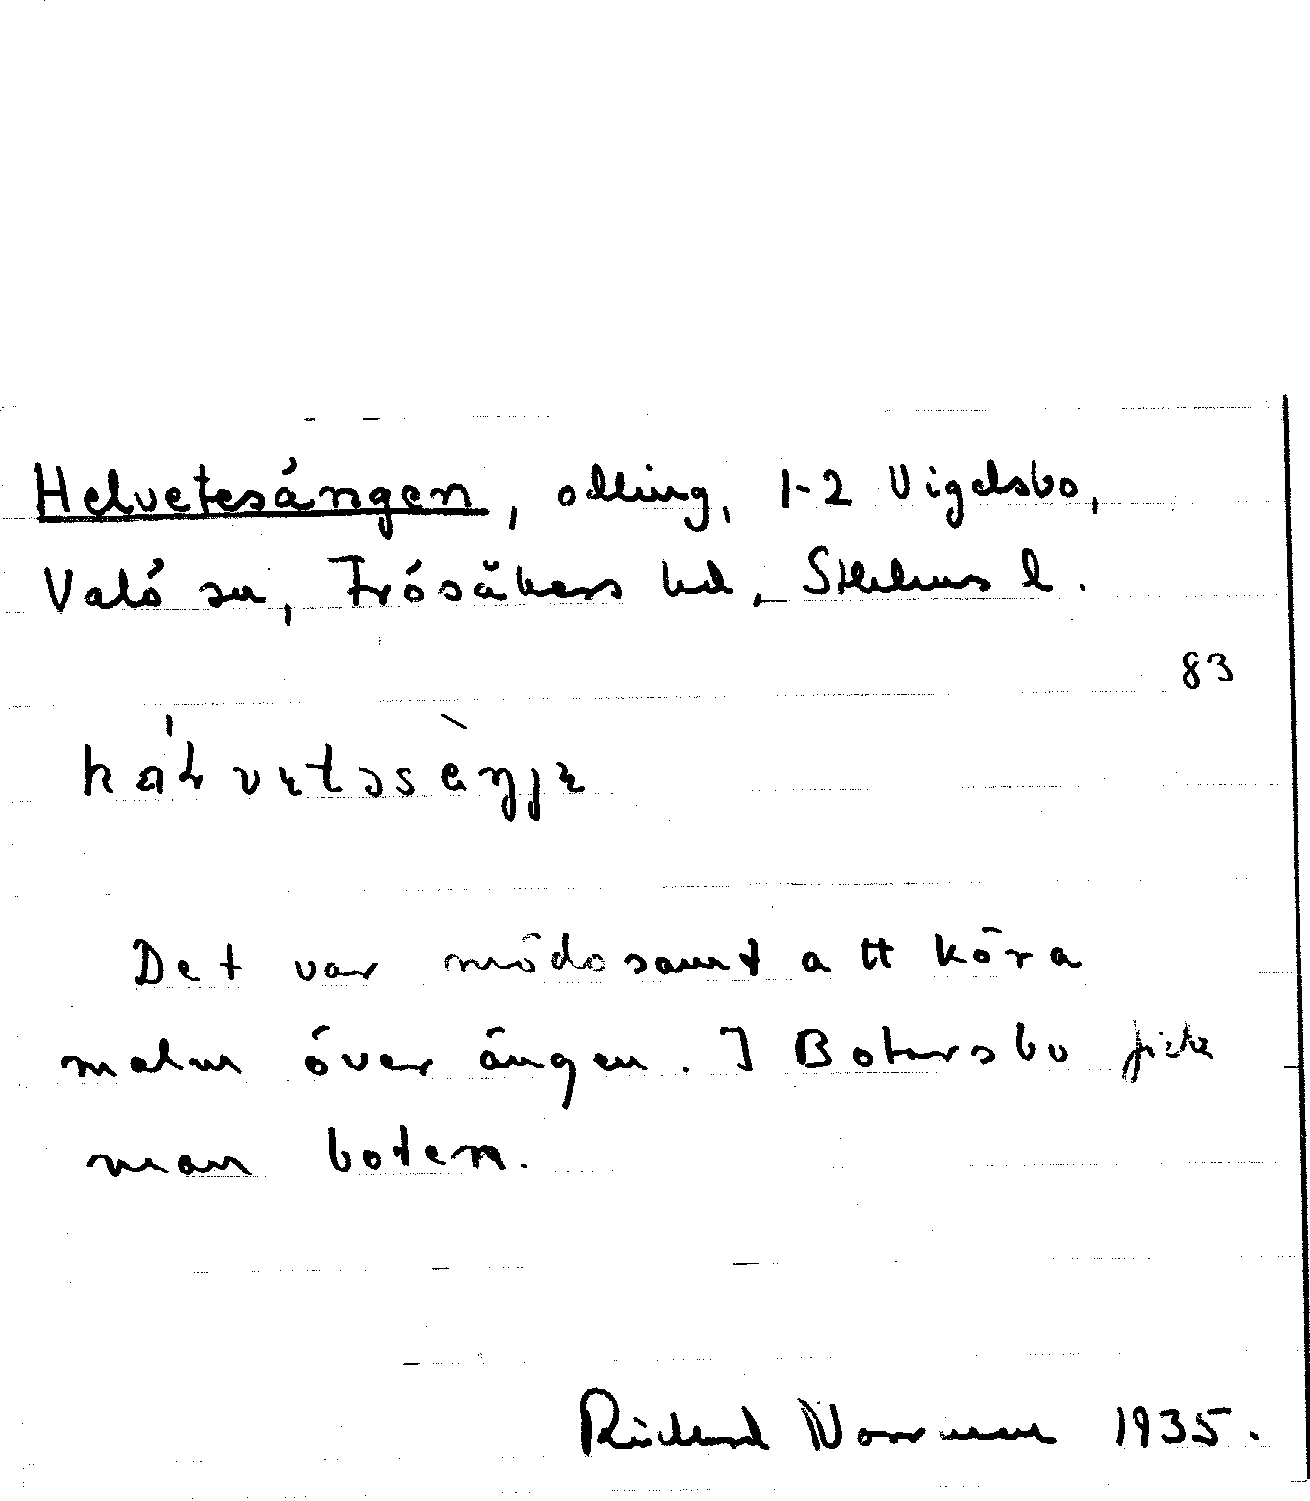 Helvetesängen, odling, 1-2 Vigelsbo,
Valö sn, Frösåkers hd, Sthlms l.
83
Det var mödosamt att köra
malm över ängen. I Botarsbo fick
man boten.
Richard Norrman 1935.